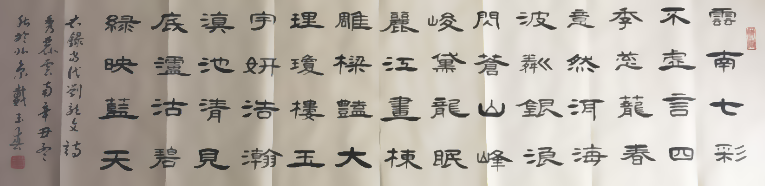 雲南七彩
不虛言四
季蔥蘢春
意然洱海
波粼銀浪
閃蒼山峰
峻黛龍眠
麗江畫棟
雕樑豔大
理瓊樓玉
宇妍浩瀚
滇池清見
底瀘沽碧
綠映藍天
右錄當代劉龍文詩
秀麗雲南辛丑冬
於北京戴玉